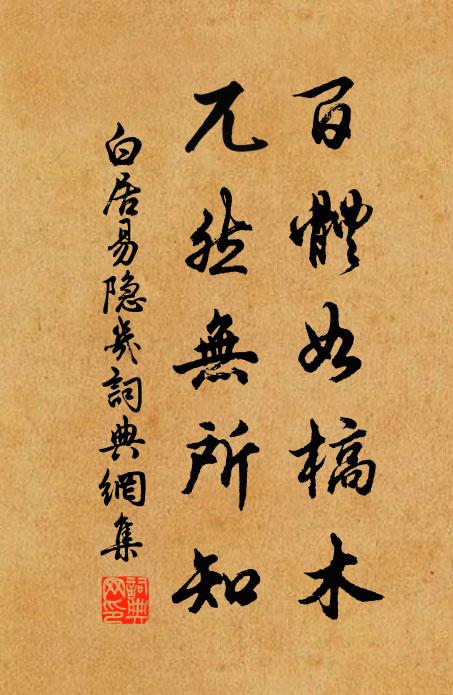 百體如槁木
兀然無所知
白居易隐几詞典網集
詞典網印